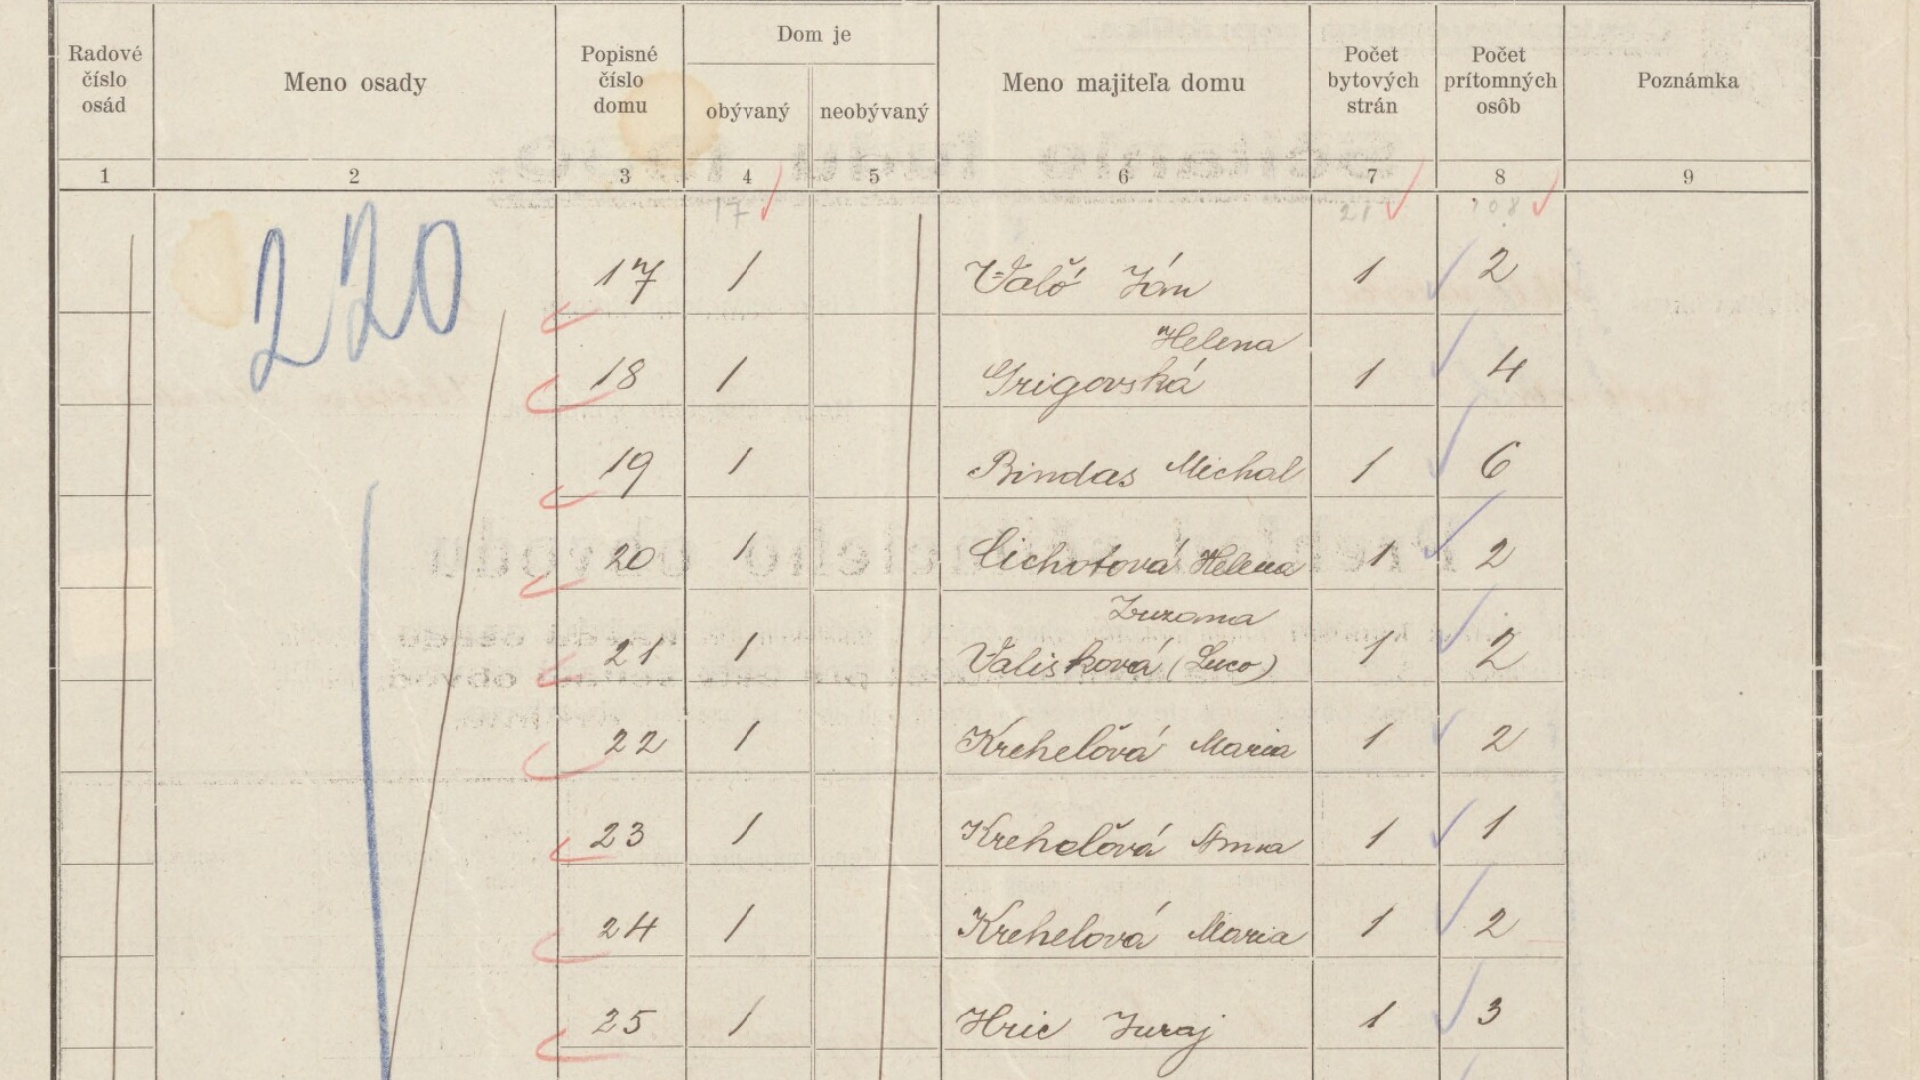 Radové číslo osád Meno osady Popisné číslo domu Dom je obývaný neobývaný Meno majiteľa domu Počet bytových strán Počet prítomných osôb Poznámka
1 2 3 4 5 6 7 8 9
17 21 108
220
17 1 Való Ján 1 2
Helena
18 1 Grigovská 1 4
19 1 Bindas Michal 1 6
20 1 Cichotová Helena 1 2
Zuzana
21 1 Valisková (Luco) 1 2
22 1 Krehelová Maria 1 2
23 1 Krehelová Anna 1 1
24 1 Krehelová Maria 1 2
25 1 Hric Juraj 1 3